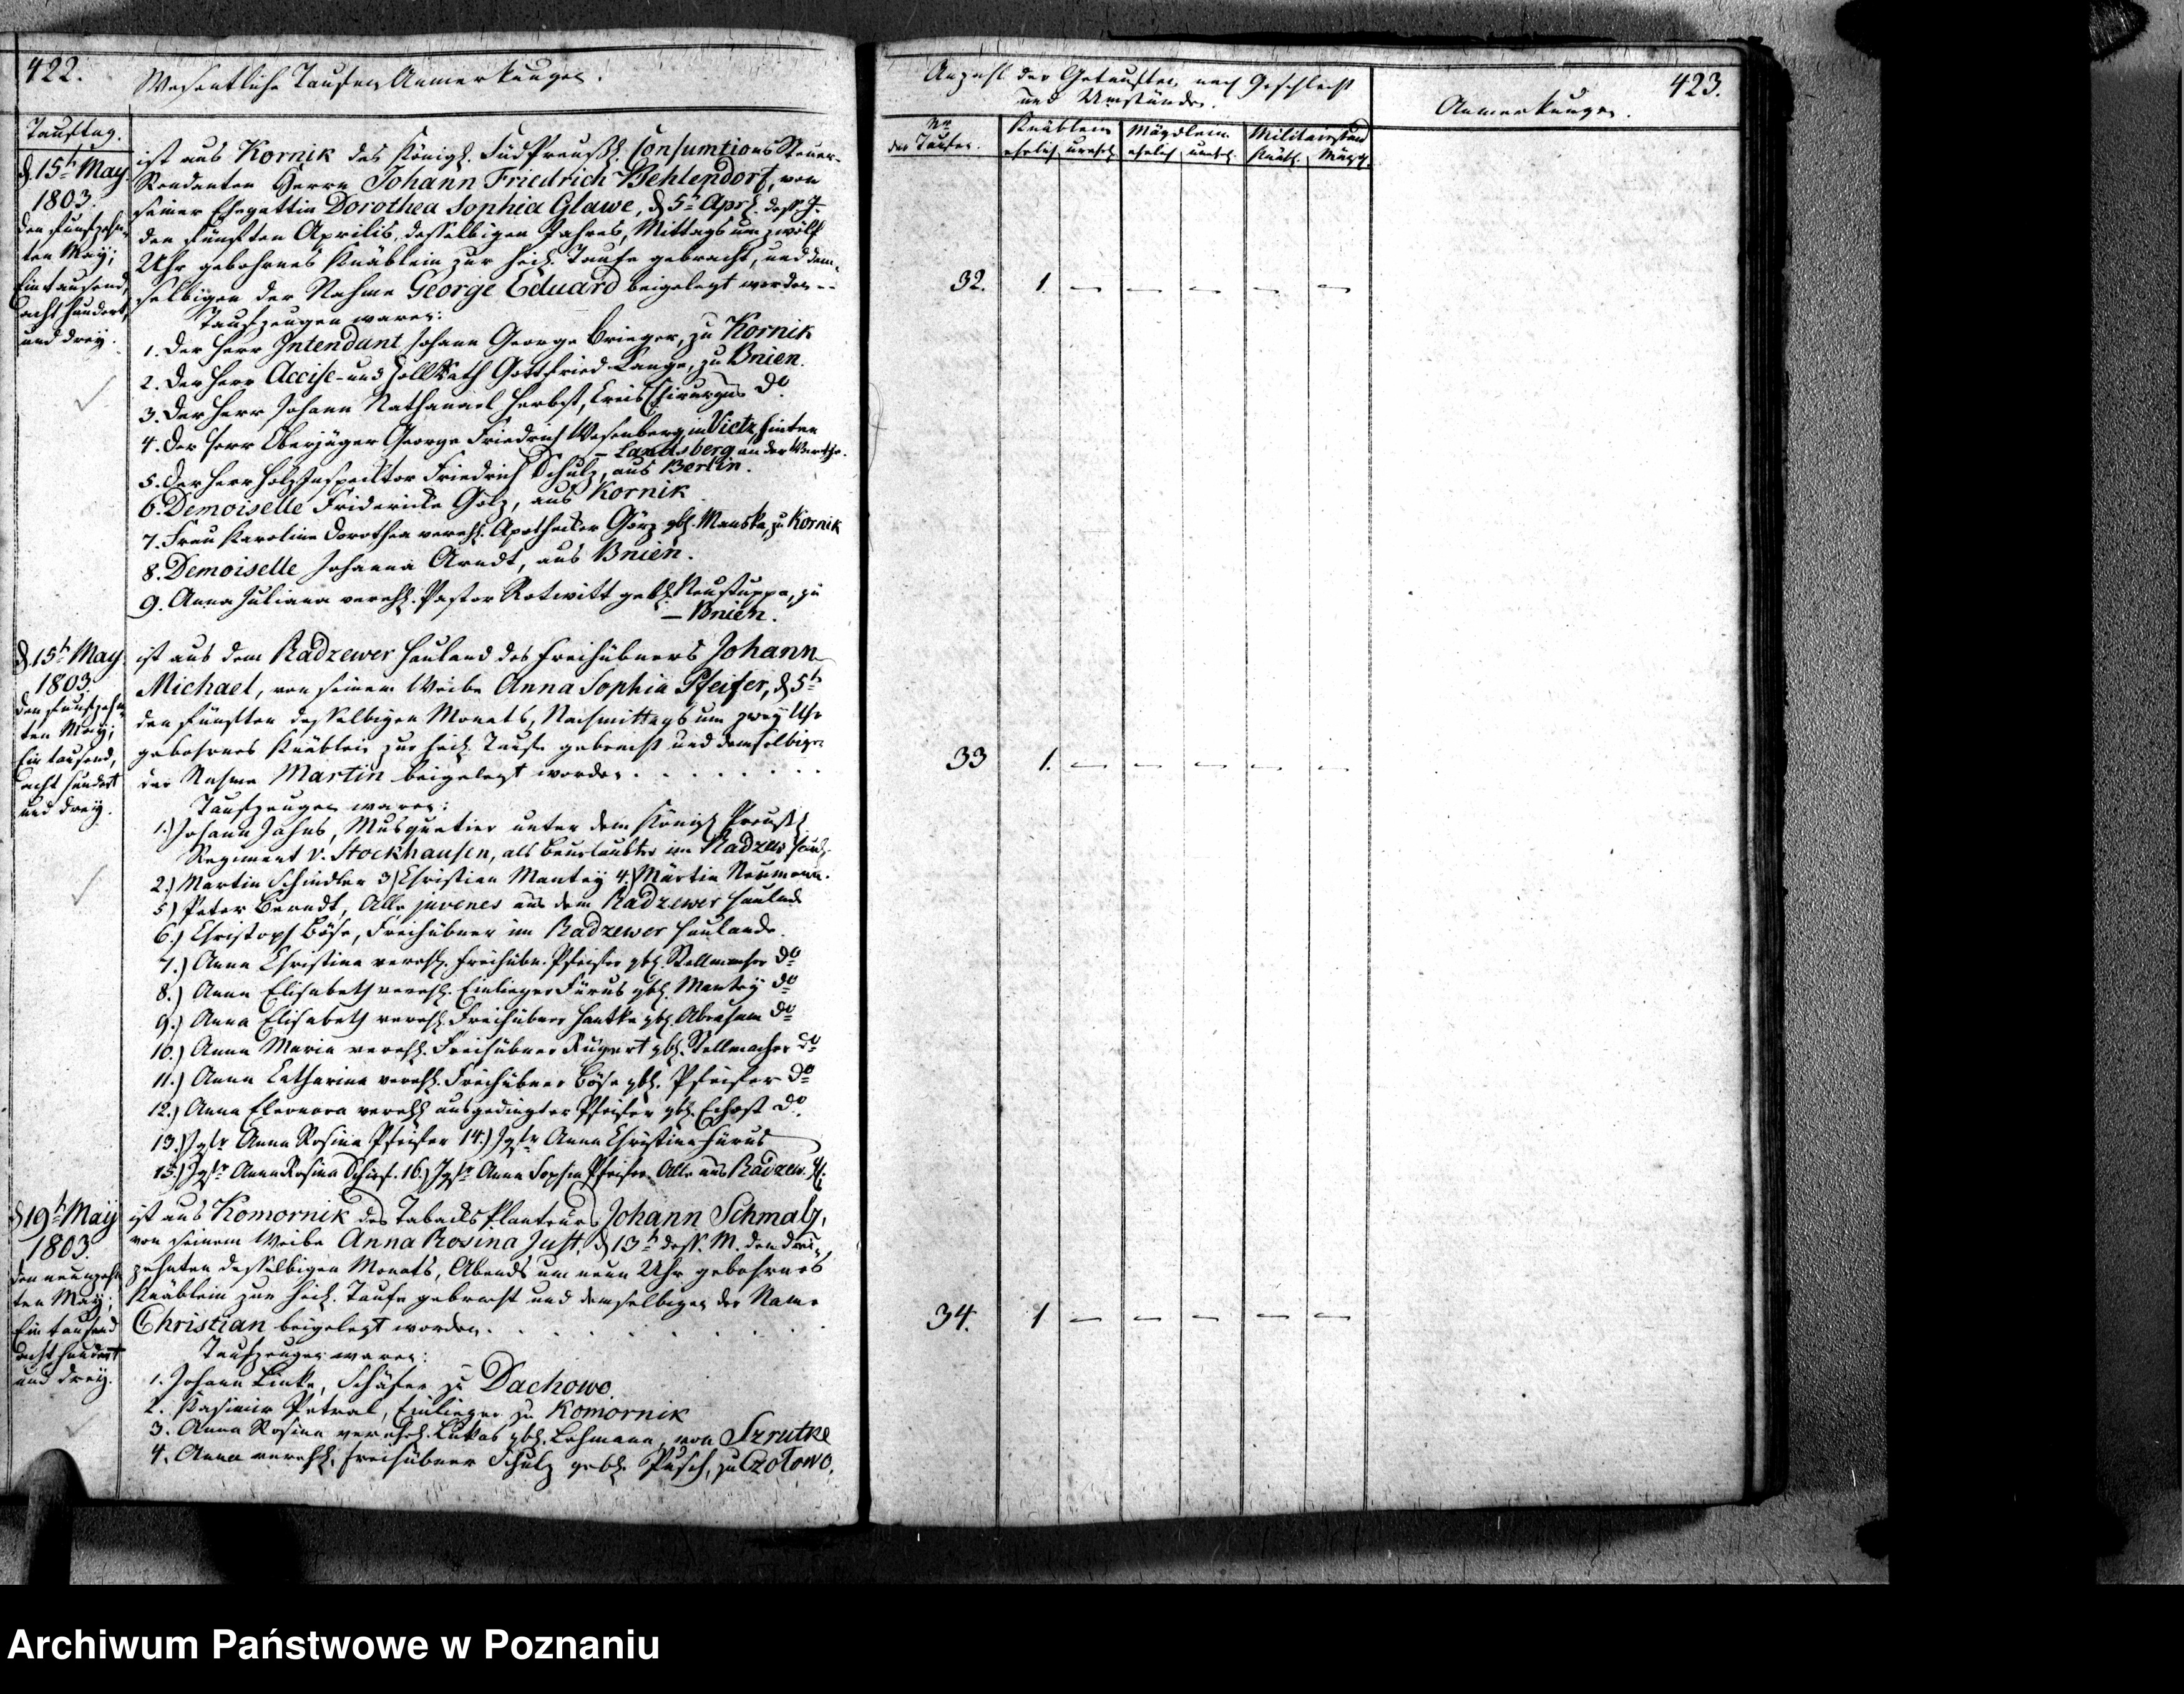 422.
Wesentliche Taufen Anmerkungen.
Tauftag.
d 15t May
1803.
den funfzehn-
ten May;
Ein tausend,
acht hundert,
und drey.
ist aus Kornik des Königl. SüdPreußl. Consumtions Steuer-
Rendanten Herrn Johann Friedrich Behlendorf, von
seiner Ehegattin Dorothea Sophia Glawe, d 5t Apr. dess. J.
den fünften Aprilis, desselbigen Jahres, Mittags um zwölf
Uhr gebohrnes Knäblein zur heil. Taufe gebracht, und dem-
selbigen der Nahme George Eduard beigelegt worden --
Taufzeugen waren:
1. Der Herr Intendant Johann George Brieger, zu Kornik
2. Der Herr Accise- und Zoll Rath Gottfried Lange, zu Bnien.
3. Der Herr Johann Nathanael Herbst, Creis Chirurgus do.
4. Der Herr Oberjäger George Friedrich Wesenberg, in Vietz, hinter
– Landsberg an der Warthe.
5. Der Herr Holz Inspecktor Friedrich Schulz, aus Berlin.
6. Demoiselle Fridericke Golz, aus Kornik
7. Frau Karoline Dorothea verehl. Apothecker Görz gbl. Manske, zu Kornik
8. Demoiselle Johanna Arndt, aus Bnien.
9. Anna Juliana verehl. Pastor Rotwitt gebl. , zu
– Bnien.
d. 15t May
1803
den funfzehn-
ten May;
Ein tausend,
acht hundert
und drey.
ist aus dem Radzewer Hauland des Freihübners Johann
Michael, von seinem Weibe Anna Sophia Pfeifer, d 5t
den fünften desselbigen Monats, Nachmittags um zwey Uhr
gebohrnes Knäblein zur heil. Taufe gebracht und demselbigen
der Nahme Martin beigelegt worden. . . . . . . .
Taufzeugen waren:
1.) Johann Jahns, Musquetier unter dem Königl Preußl
Regiment v. Stockhausen, als beurlaubter im Radzew Haul.
2.) Martin Schindler 3) Christian Mantey 4.) Martin Neumann.
5) Peter Berndt, Alle juvenes aus dem Radzewer Hauland
6.) Christoph Böse, Freihübner im Radzewer Haulande.
7.) Anna Christina verehl. Freihübn. Pfeifer gbl. Stellmacher do
8.) Anna Elisabeth verehl. Einlieger Fürus gbl. Mantey do
9.) Anna Elisabeth verehl. Freihübner Hantke gbl. Abraham do
10.) Anna Maria verehl. Freihübner gbl. Stellmacher do
11.) Anna Catharina verehl. Freihübner Böse gbl. Pfeifer do
12.) Anna Eleonora verehl ausgedingter Pfeifer gbl. do.
13.) Jgfr Anna Rosina Pfeifer 14.) Jgfr Anna Christina Fürus
15.) Jgfr Anna Rosina . 16.) Jgfr Anna Sophia Pfeifer Alle aus Radzew. H.
d 19t May
1803.
den neunzehn
ten May;
Ein tausend
acht hundert
und drey.
ist aus Komornik des Tabacks Planteurs Johann Schmalz,
von seinem Weibe Anna Rosina Just, d 13t dess. M. den drei-
zehnten desselbigen Monats, Abends um neun Uhr gebohrnes
Knäblein zur heil. Taufe gebracht und demselbigen der Name
Christian beigelegt worden. . . . . . .
Taufzeugen waren:
1. Johann Linke, Schäfer zu Dachowo.
2. Kasimir Petral, Einlieger zu Komornik
3. Anna Rosina verehel. Lukas gbl. Lehmann, von Szrutke
4. Anna verehl. Freihübner Schulz gebl. Pusch, zu Czolowo.
423.
Anzahl der Getauften nach Geschlecht
und Umständen.
Anmerkungen.
No der Taufen.
Knäblein
Mägdlein
Militairstand
ehelich unehel
ehelich unehel.
Knäbl. Mägdl.
32. 1. — — — — —
33 1. — — — — —
34. 1 — — — — —
Archiwum Państwowe w Poznaniu